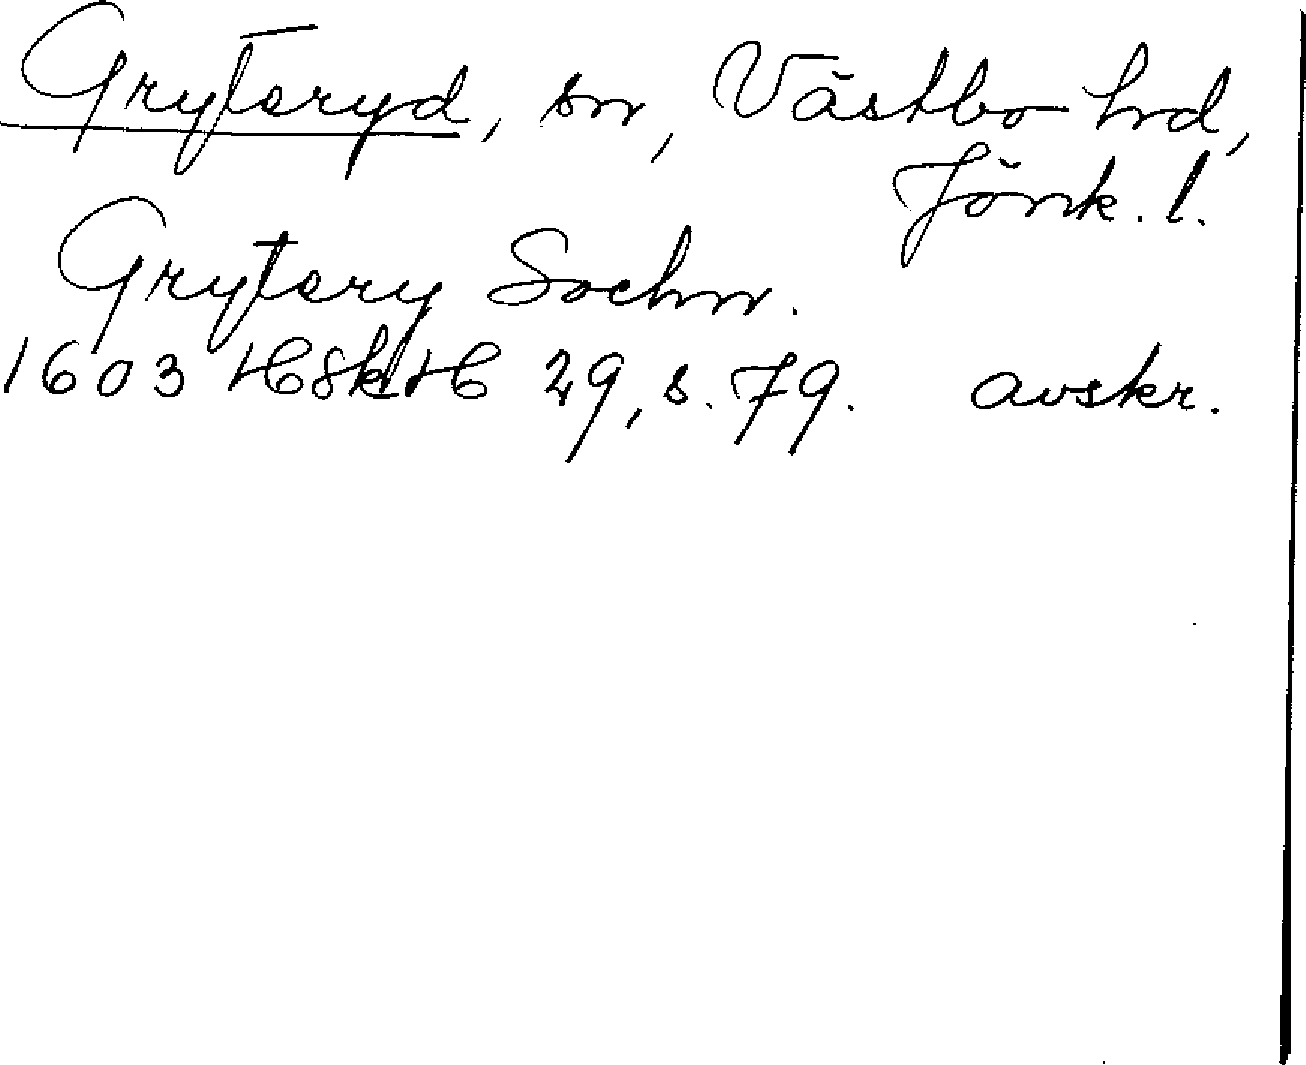 Gryteryd, sn, Västbo hrd,
Jönk. l.
Grytery Sochn.
1603 HSkH 29, s. 79. avskr.